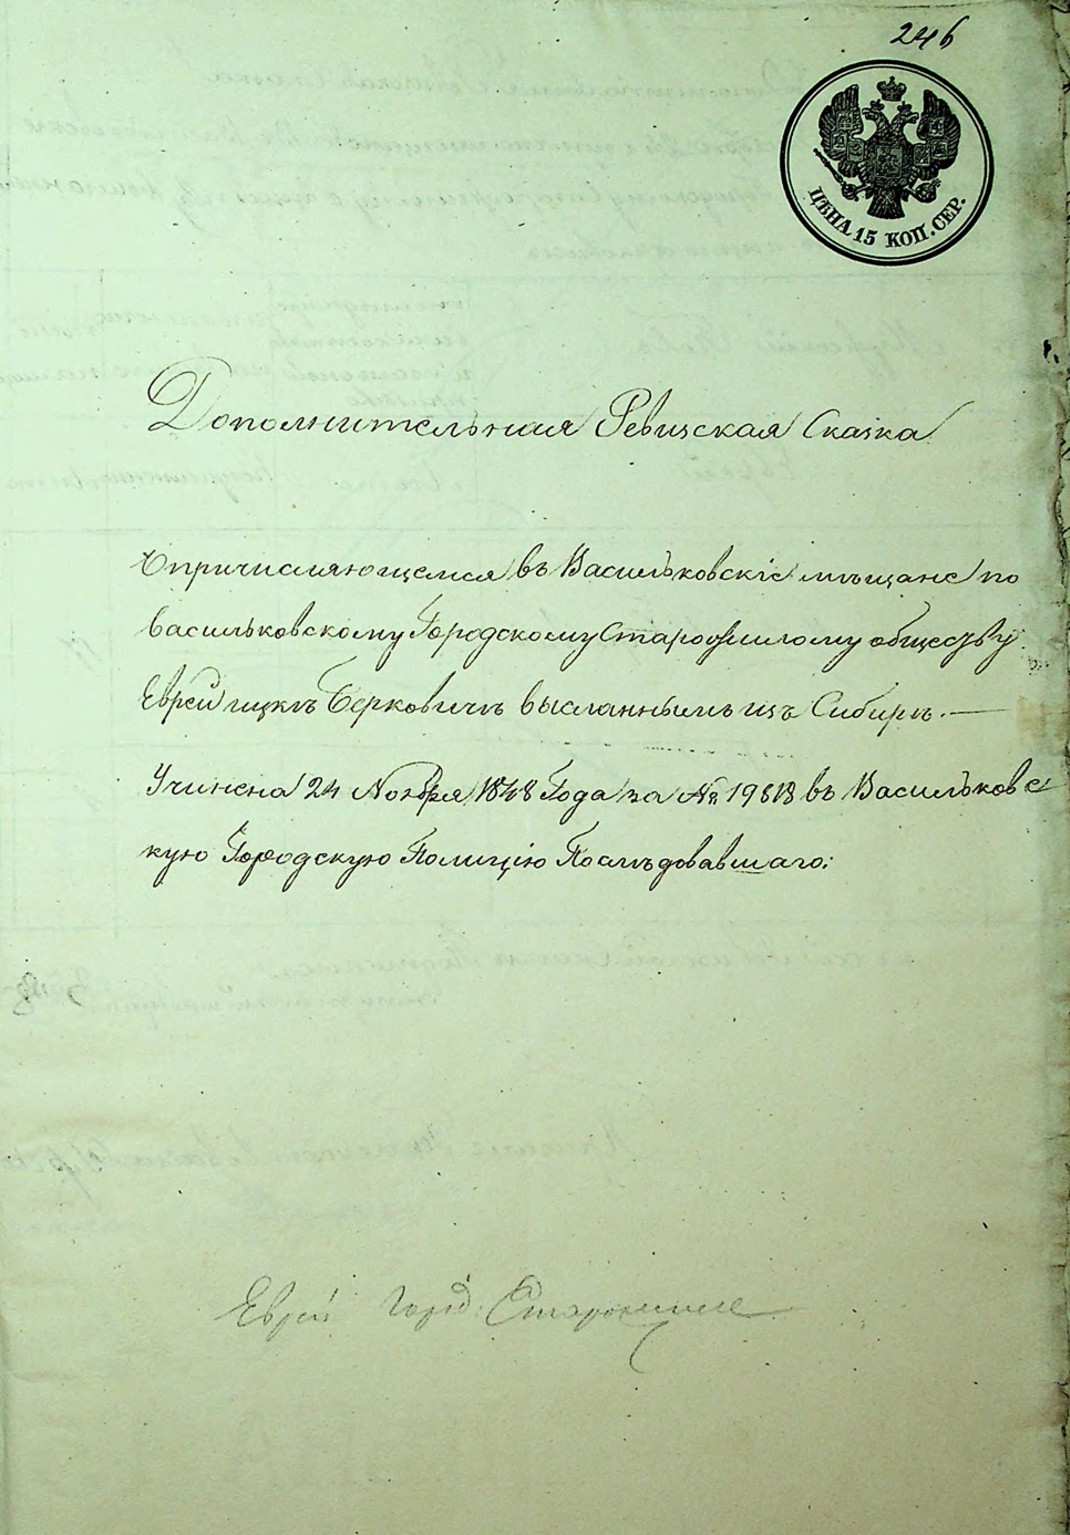 246
ЦѢНА 15 КОП. СЕР.
Дополнительная Ревизская Сказка
О причисляющемся въ Васильковскіе мѣщане по
Васильковскому Городскому Старожилому обществу
Еврей Ицкѣ Берковичѣ высланнымъ изъ Сибирѣ. —
Учинена 24 Ноября 1848 Года за № 19818 въ Васильковс
кую Городскую Полицію Послѣдовавшаго:
Еврей Город. Старожилые